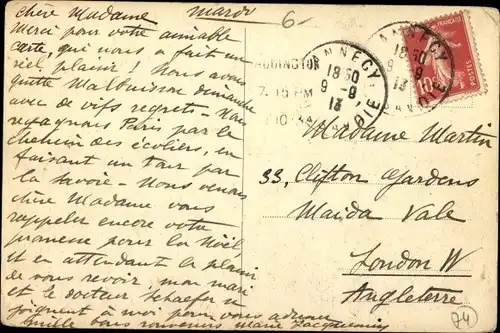 Chère Madame Mardi 6-
Merci pour votre aimable
carte, qui nous a fait un
réel plaisir! Nous avons
quitté Malbuisson dimanche
avec de vifs regrets - Nous
regagnons Paris par le
chemin des écoliers, en
faisant un tour par
la Savoie - Nous venons
chère Madame vous
rappeler encore votre
promesse pour la Noël
et en attendant le plaisir
de vous revoir, mon mari
et le docteur Schaefer se
joignent à moi pour vous adresser
mille bons souvenirs Marie
ANNECY
18 50
9 - 9
13
SAVOIE
ADDINGTON
7.15 PM
10
ANNECY
18 50
9 - 9
13
SAVOIE
POSTES
10
Madame Martin
33, Clifton Gardens
Maida Vale
London W
Angleterre
74